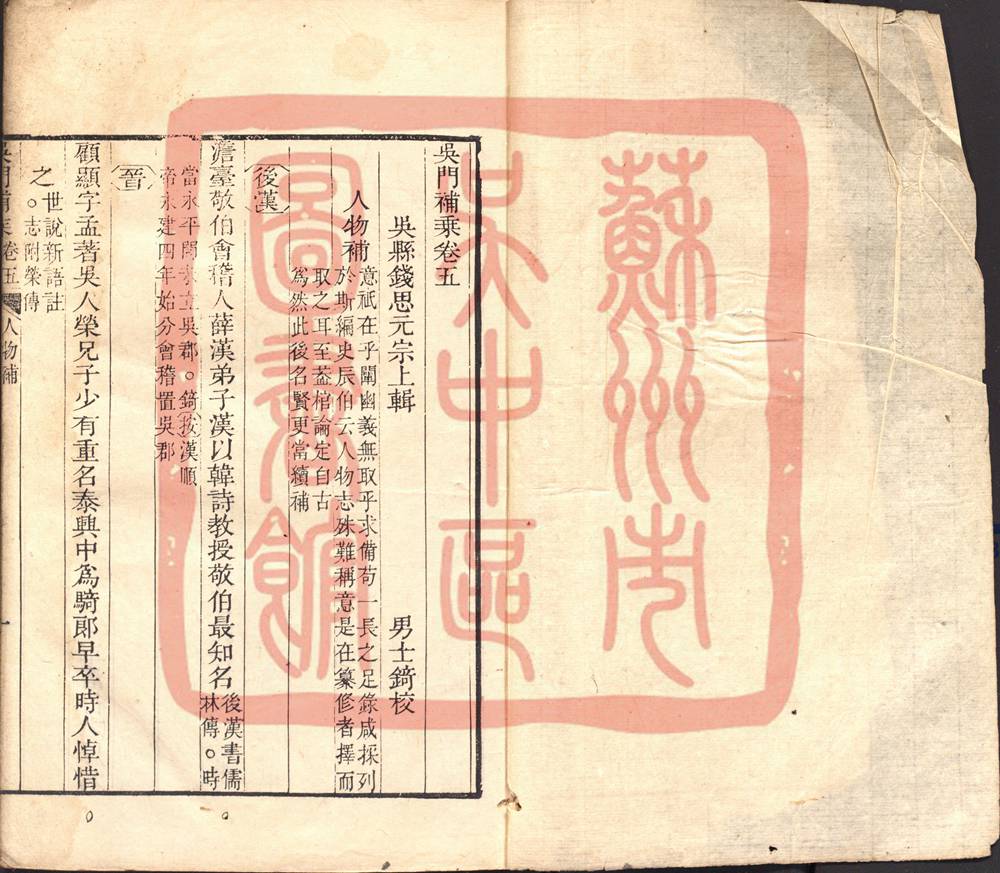 吳門補乘卷五
吳縣錢思元宗上輯　男士錡校
人物補
意祇在乎闡幽義無取乎求備苟一長之足錄咸採列
於斯編史辰伯云人物志殊難稱意是在纂修者擇而
取之耳至蓋棺論定自古
爲然此後名賢更當續補
後漢
澹臺敬伯會稽人薛漢弟子漢以韓詩教授敬伯最知名
後漢書儒
林傳○時
當永平間未立吳郡○錡按漢順
帝永建四年始分會稽置吳郡
晉
顧顯字孟著吳人榮兄子少有重名泰興中爲騎郎早卒時人悼惜
之
世說新語註
○志附榮傳
卷五　人物補　一
蘇州市
吳中區
圖書館